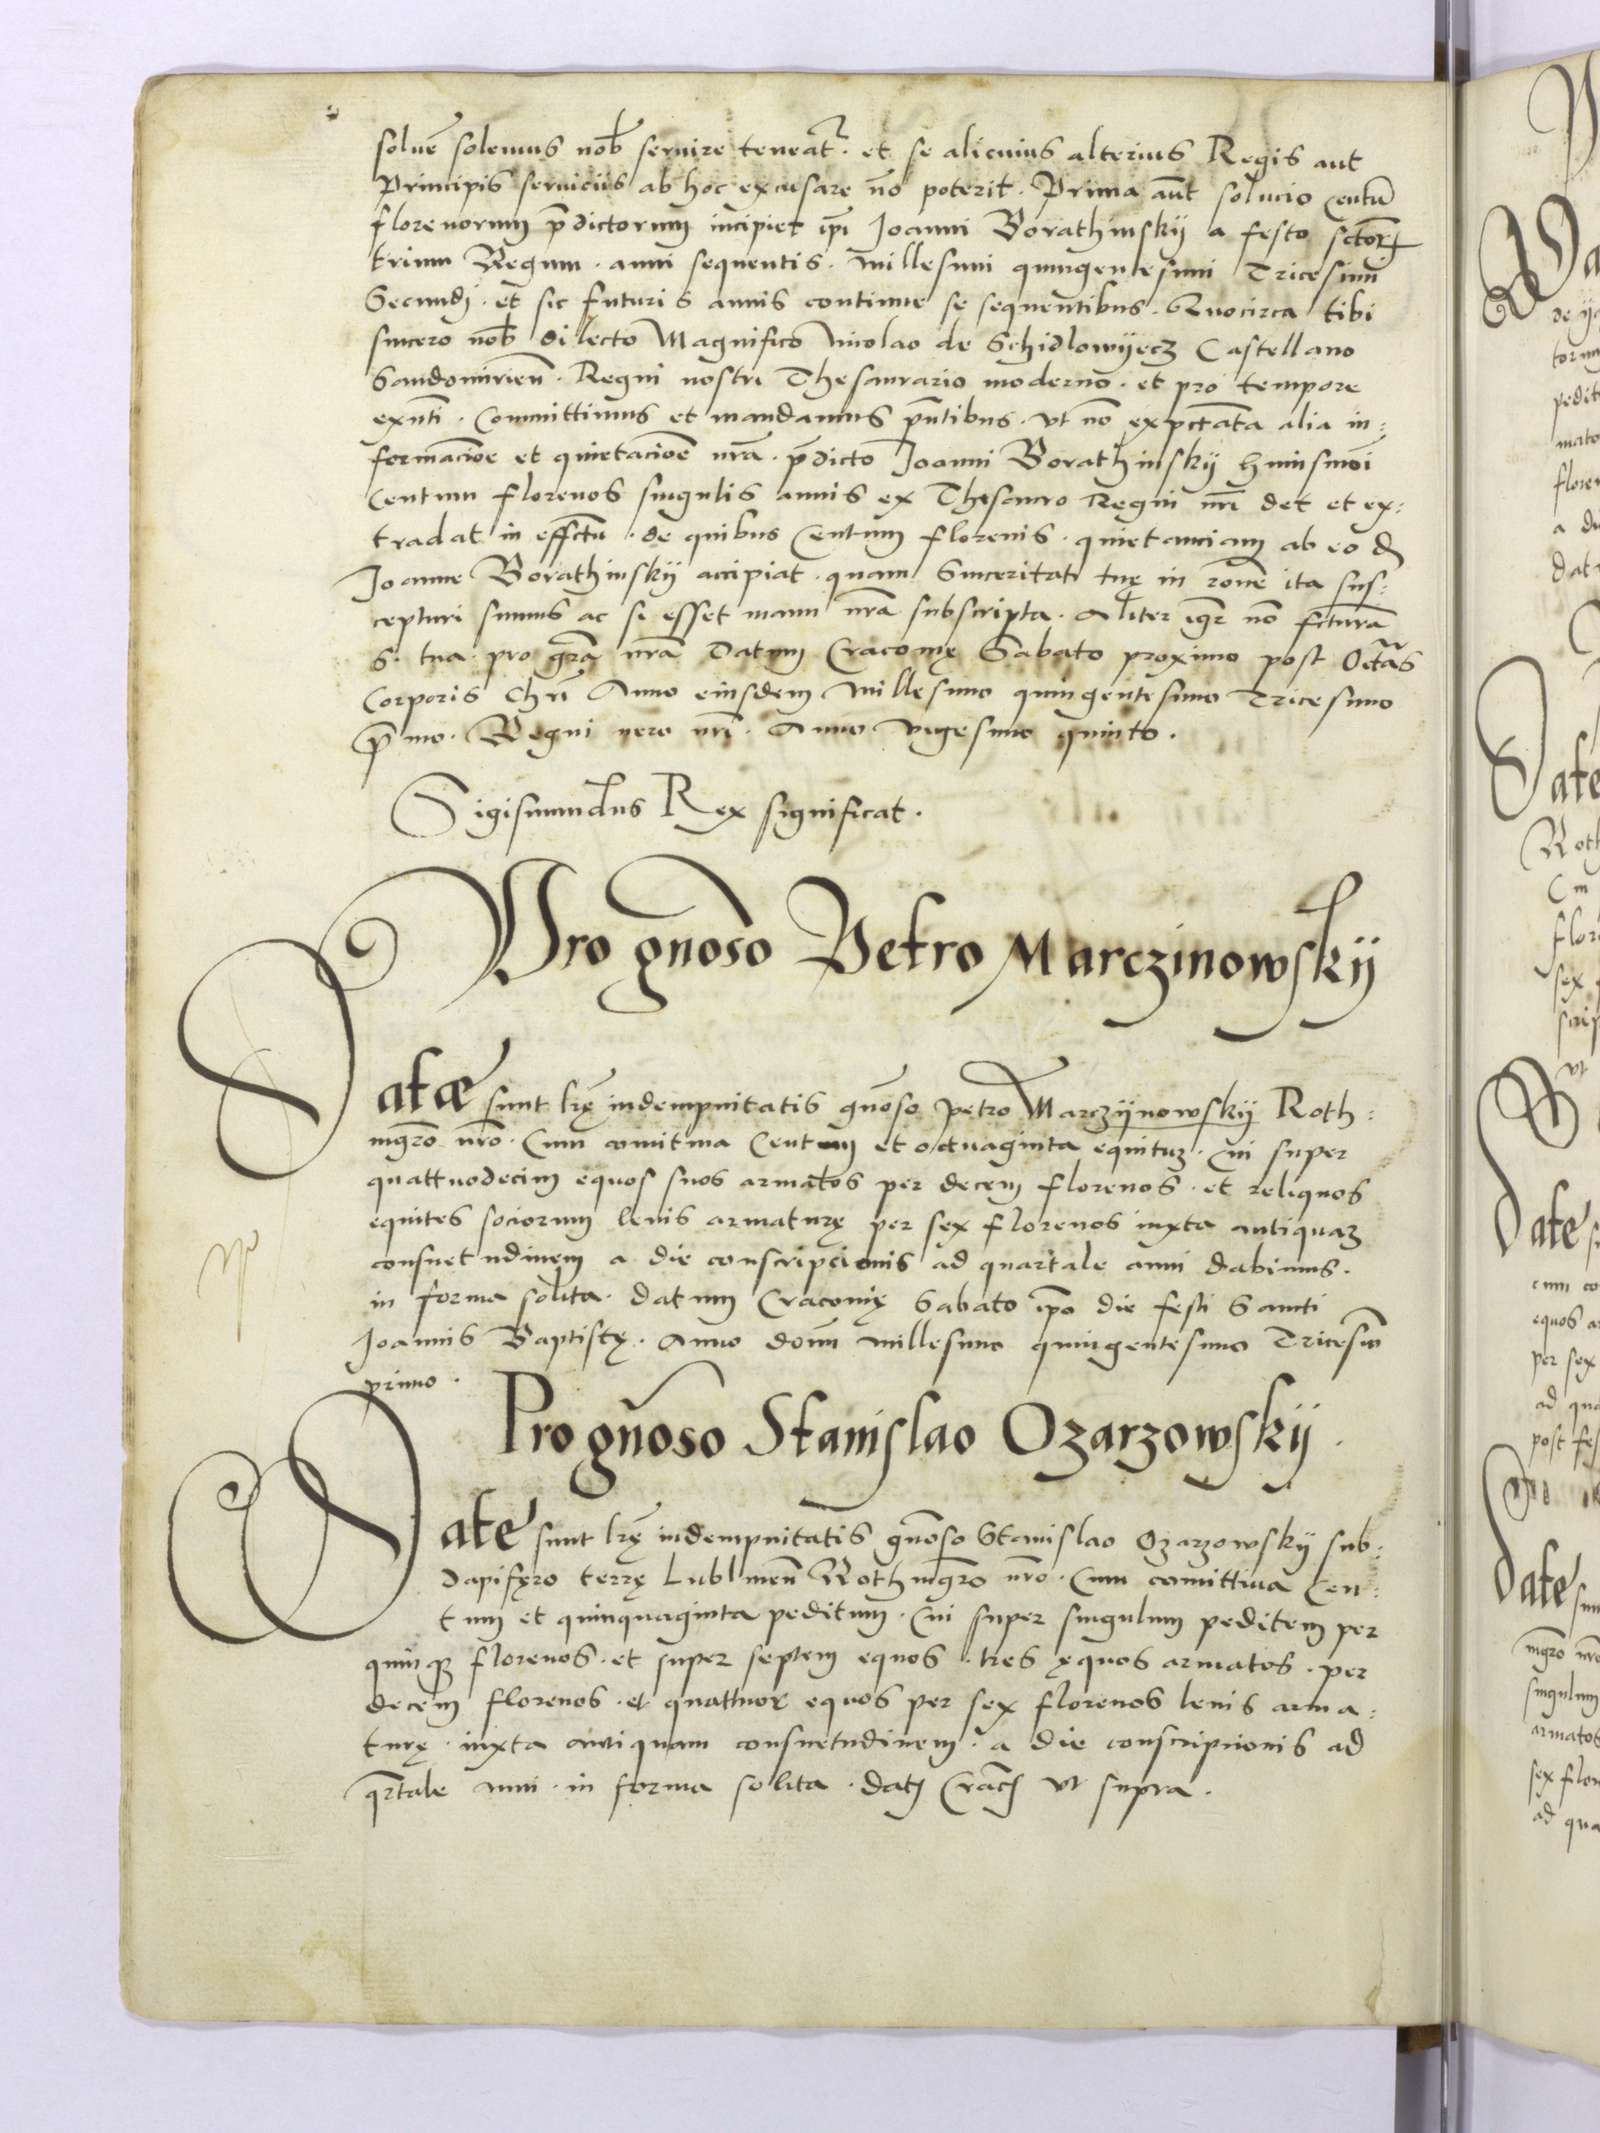 soluē solemus nob̄ seruire teneat᷑. et se alicuius alterius Regis aut
Principis seruiciis ab hoc excusare nō poterit. Prima aūt solucio Centū
florenorum p̄dictorum incipiet ip̄i Joanni Borathinskij a festo sctōrꝝ
trium Regum. anni sequentis. Millesimi quingentesimi Tricesimi
Secundi. et sic futuris annis continue se sequentibus. Quocirca tibi
sincero nob̄ dilecto Magnifico Nicolao de Schidlowyecz Castellano
Sandomirieñ. Regni nostri Thesaurario moderno. et pro tempore
exn̄ti. Committimus et mandamus p̄ntibus. vt nō expctāta alia in:
formac̄ioe et quietac̄ioe nr̄a. p̄dicto Joanni Borathinskij huiusmōi
Centum florenos singulis annis ex Thesauro Regni nr̄i det et ex:
tradat in effctū. de quibus Centum florenis. quietanciam ab eo d
Joanne Borathinskij accipiat. quam Sinceritati tuę in rōne ita sus:
cepturi sumus ac si esset manu nr̄a subscripta. Aliter igr̄ nō fctūra
S. tua pro gr̄a nr̄a Datum Cracouię Sabato proximo post Octa᷑s
Corporis Chrī Anno eiusdem Millesimo quingentesimo Tricesimo
p̄mo. Regni uero nr̄i. Anno vigesimo quinto.
Sigismundus Rex significat.
Pro gn̄oso Petro Marczinowskij
Datæ sunt lr̄ę indempnitatis gn̄oso Petro Marczijnowskij Roth:
mgr̄o nr̄o. Cum comitiua Centum et octuaginta equituꝫ. Cui super
quattuodecim equos suos armatos per decem florenos. et reliquos
equites sociorum leuis armaturę per sex florenos iuxta antiquaꝫ
consuetudinem a die conscripcionis ad quartale anni dabimus.
in forma solita. Datum Cracouię Sabato ip̄o die festi Sancti
Joannis Baptistę. Anno domī Millesimo quingentesimo Tricesīo
primo.
Pro gn̄oso Stanislao Ozarzowskij.
Date sunt lr̄ę indempnitatis gn̄oso Stanislao Ozarzowskij sub:
dapifęro terrę Lublineñ Rothmgr̄o nr̄o. Cum comittiua Cen:
tum et quinquaginta peditum. Cui super singulum peditem per
quinqꝫ florenos. et super septem equos. tres ęquos armatos. per
decem florenos. et quattuor equos per sex florenos leuis arma:
turę. iuxta antiquam consuetudinem. a die conscripcionis ad
qr̄tale anni. in forma solita. Dat Crac vt supra.